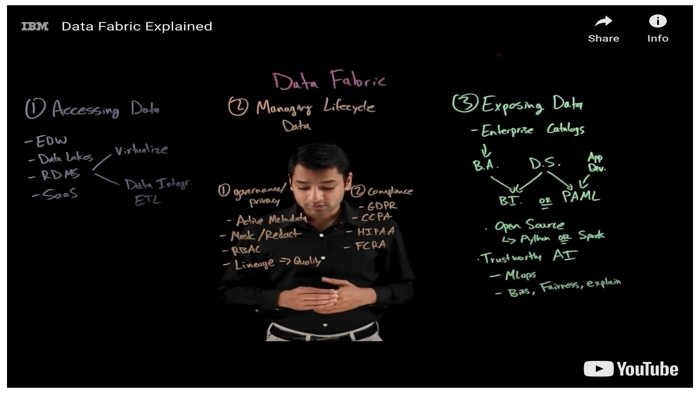 IBM Data Fabric Explained
Share
Info
Data Fabric
① Accessing Data
- EDW
- Data Lakes
- RDMS
- SaaS
Virtualize
Data Integr.
ETL
② Managing Lifecycle
Data
① governance/
privacy
- Active Metadata
- Mask/Redact
- RBAC
- Lineage => Quality
② Compliance
- GDPR
- CCPA
- HIPAA
- FCRA
③ Exposing Data
- Enterprise Catalogs
B.A.
D.S.
App
Dev.
BI. OR PAML
· Open Source
↳ Python OR Spark
· Trustworthy AI
- MLops
- Bias, Fairness, explain
YouTube